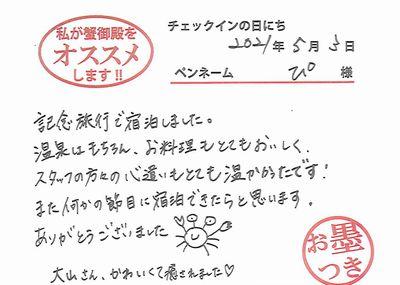 私が蟹御殿を
オススメ
します!!
チェックインの日にち
2021年5月3日
ペンネーム ぴ 様
記念旅行で宿泊しました。
温泉はもちろん、お料理もとてもおいしく、
スタッフの方々の心遣いもとても温かかったです!
また何かの節目に宿泊できたらと思います。
ありがとうございました
大山さん、かわいくて癒されました♡
お墨
つき